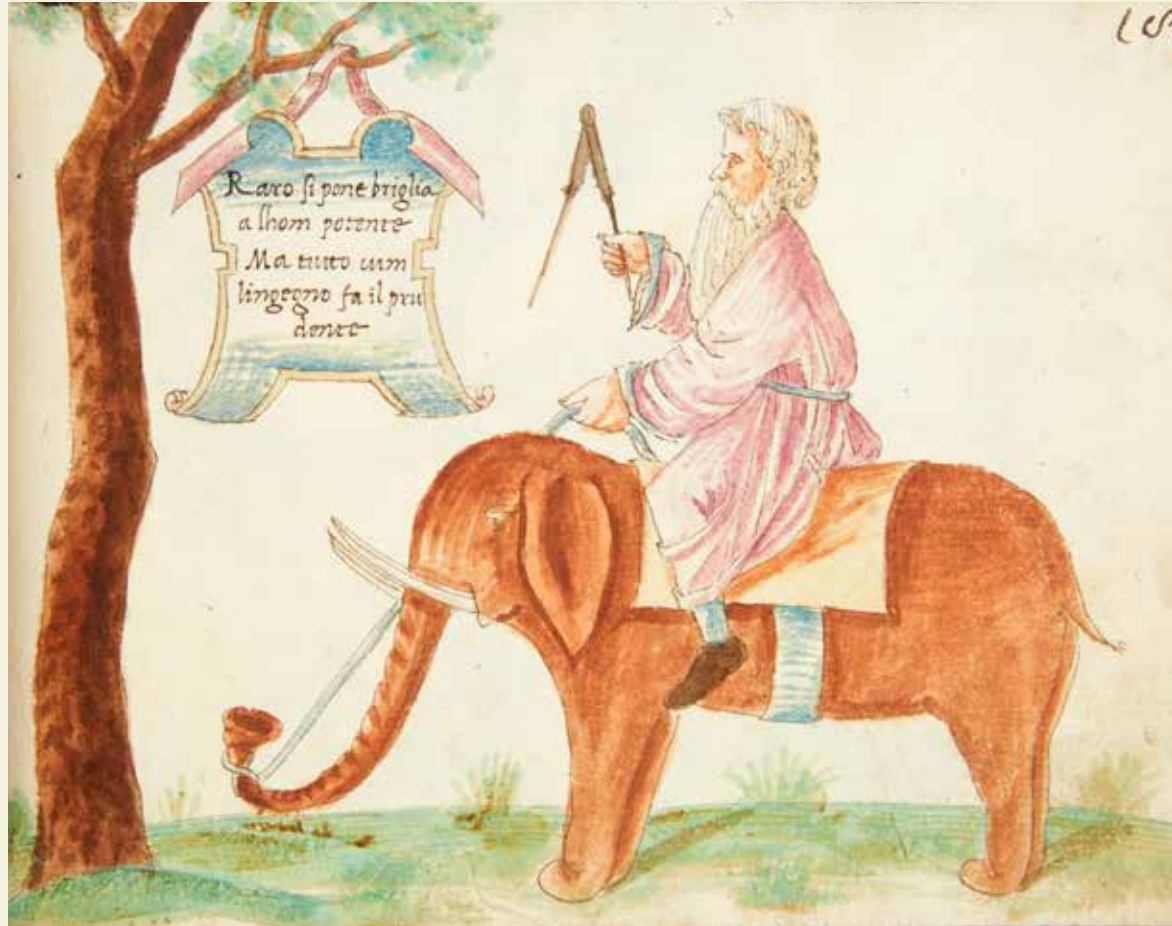 Raro si pone briglia
a lhom potente
Ma tutto cum
lingegno fa il pru
dente